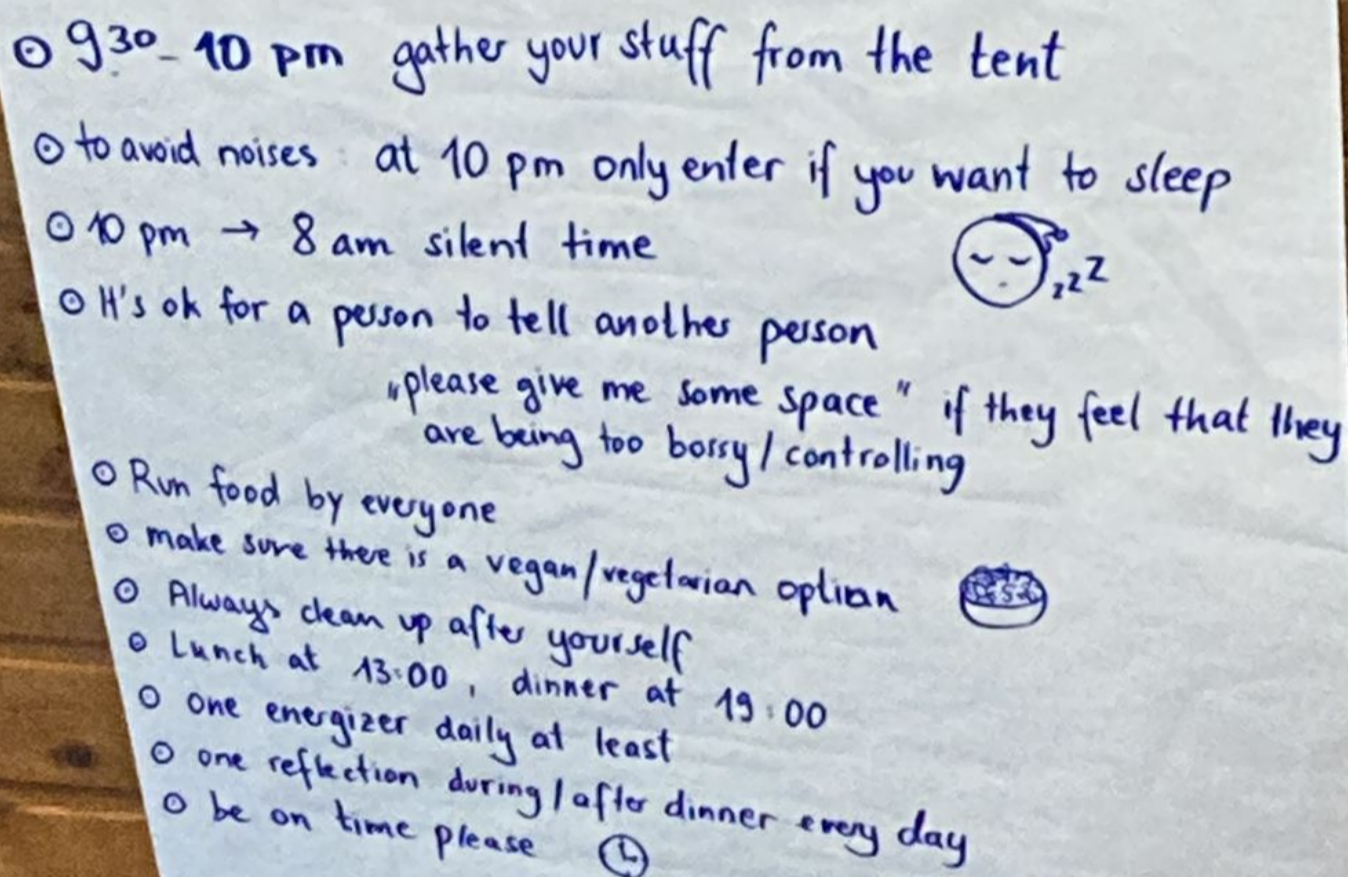 ⊙ 9³⁰ - 10 pm gather your stuff from the tent
⊙ to avoid noises : at 10 pm only enter if you want to sleep
⊙ 10 pm → 8 am silent time
zzZ
⊙ It's ok for a person to tell another person
„please give me some space" if they feel that they
are being too bossy / controlling
⊙ Run food by everyone
⊙ make sure there is a vegan/vegetarian option
⊙ Always clean up after yourself
⊙ Lunch at 13:00, dinner at 19:00
⊙ one energizer daily at least
⊙ one reflection during / after dinner every day
⊙ be on time please